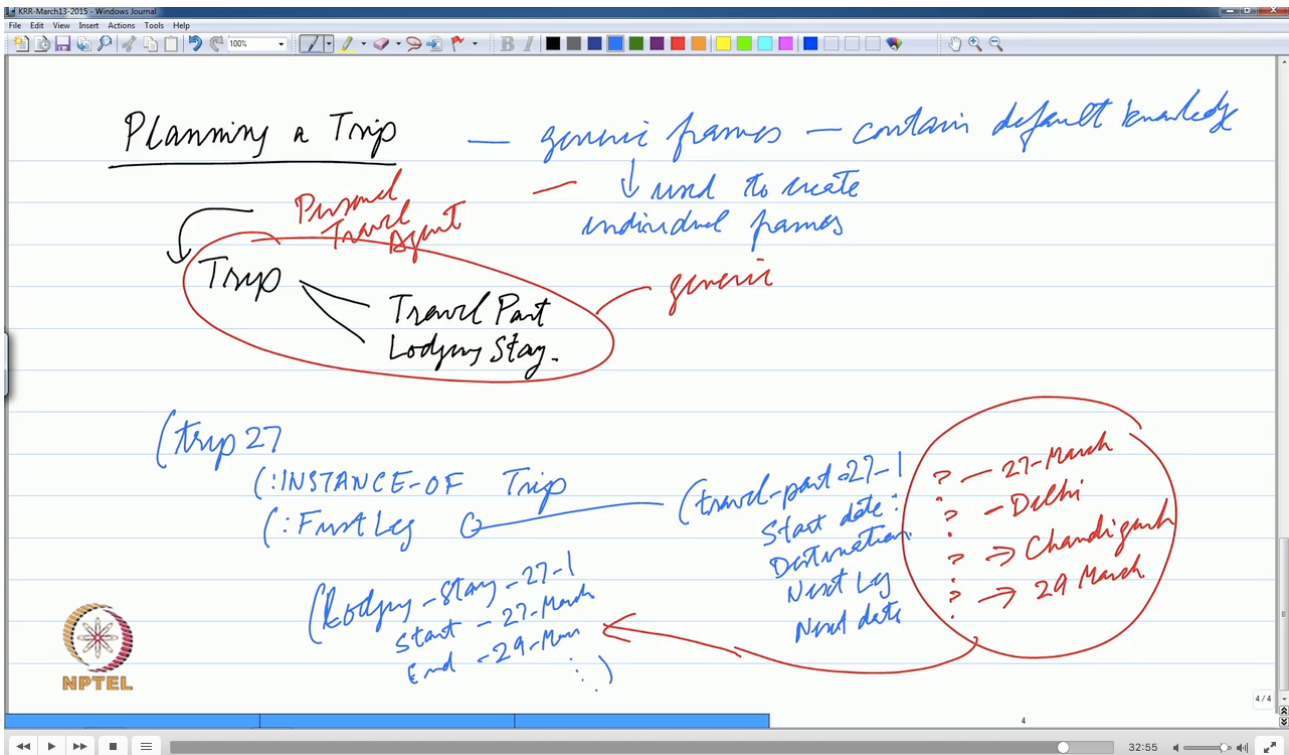 KRR-March13-2015 - Windows Journal
File Edit View Insert Actions Tools Help
100%
B I
Planning a Trip — generic frames — contain default knowledge
↓ used to create
individual frames
Personal
Travel
Agent
Trip
generic
Travel Part
Lodging Stay.
(trip 27
(:INSTANCE-OF Trip
(:First Leg
(travel-part-27-1
Start date : ? — 27-March
Destination : ? - Delhi
Next Leg : ? ⇒ Chandigarh
Next date : ? → 29 March
(Lodging-Stay-27-1
Start - 27-March
End - 29-Mar
:)
NPTEL
4/4
4
32:55